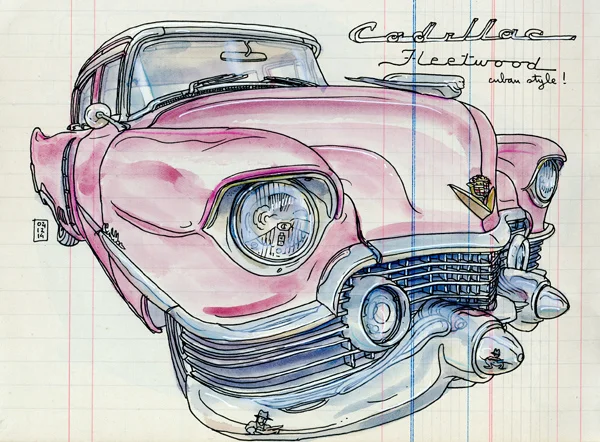 Cadillac
Fleetwood
cuban style!
02
12
14